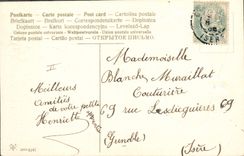 Postkarte - Carte postale - Post card - Cartolina postale
Brefkort - Briefkaart - Correspondenzkarte - Dopisnica
Dopisnice - Karta korespondencyjna - Levelező-Lap
Weltpostverein - Union postale universelle - Unione postale universale
Tarjeta postal - Cartão postal - ОТКРЫТОЕ ПИСЬМО
II
Mademoiselle
Blanche Muraillat
Couturière
69 rue Lesdiguières 69
Grenoble
(Isère)
Meilleurs
amitiés
de votre petite
Henriette